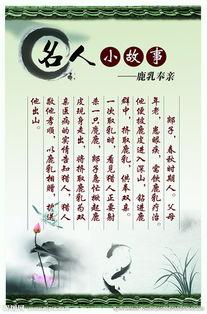 名人小故事
——鹿乳奉亲
郯子，春秋时期人。父母
年老，患眼疾，需饮鹿乳疗治。
他便披鹿皮进入深山，钻进鹿
群中，挤取鹿乳，供奉双亲。
一次取乳时，看见猎人正要射
杀一只麂鹿，郯子急忙掀起鹿
皮现身走出，将挤取鹿乳为双
亲医病的实情告知猎人，猎人
敬他孝顺，以鹿乳相赠，护送
他出山。